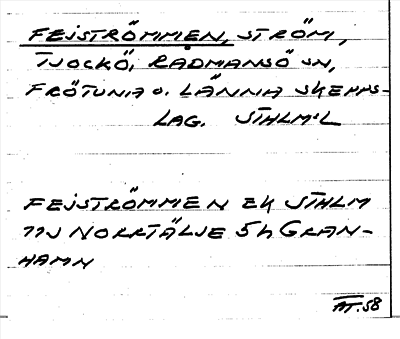 FEJSTRÖMMEN, STRÖM,
TJOCKÖ, RÅDMANSÖ SN,
FRÖTUNA O. LÄNNA SKEPPS-
LAG. STHLM:L
FEJSTRÖMMEN EK STHLM
11J NORRTÄLJE 5h GRAN-
HAMN
AT.58